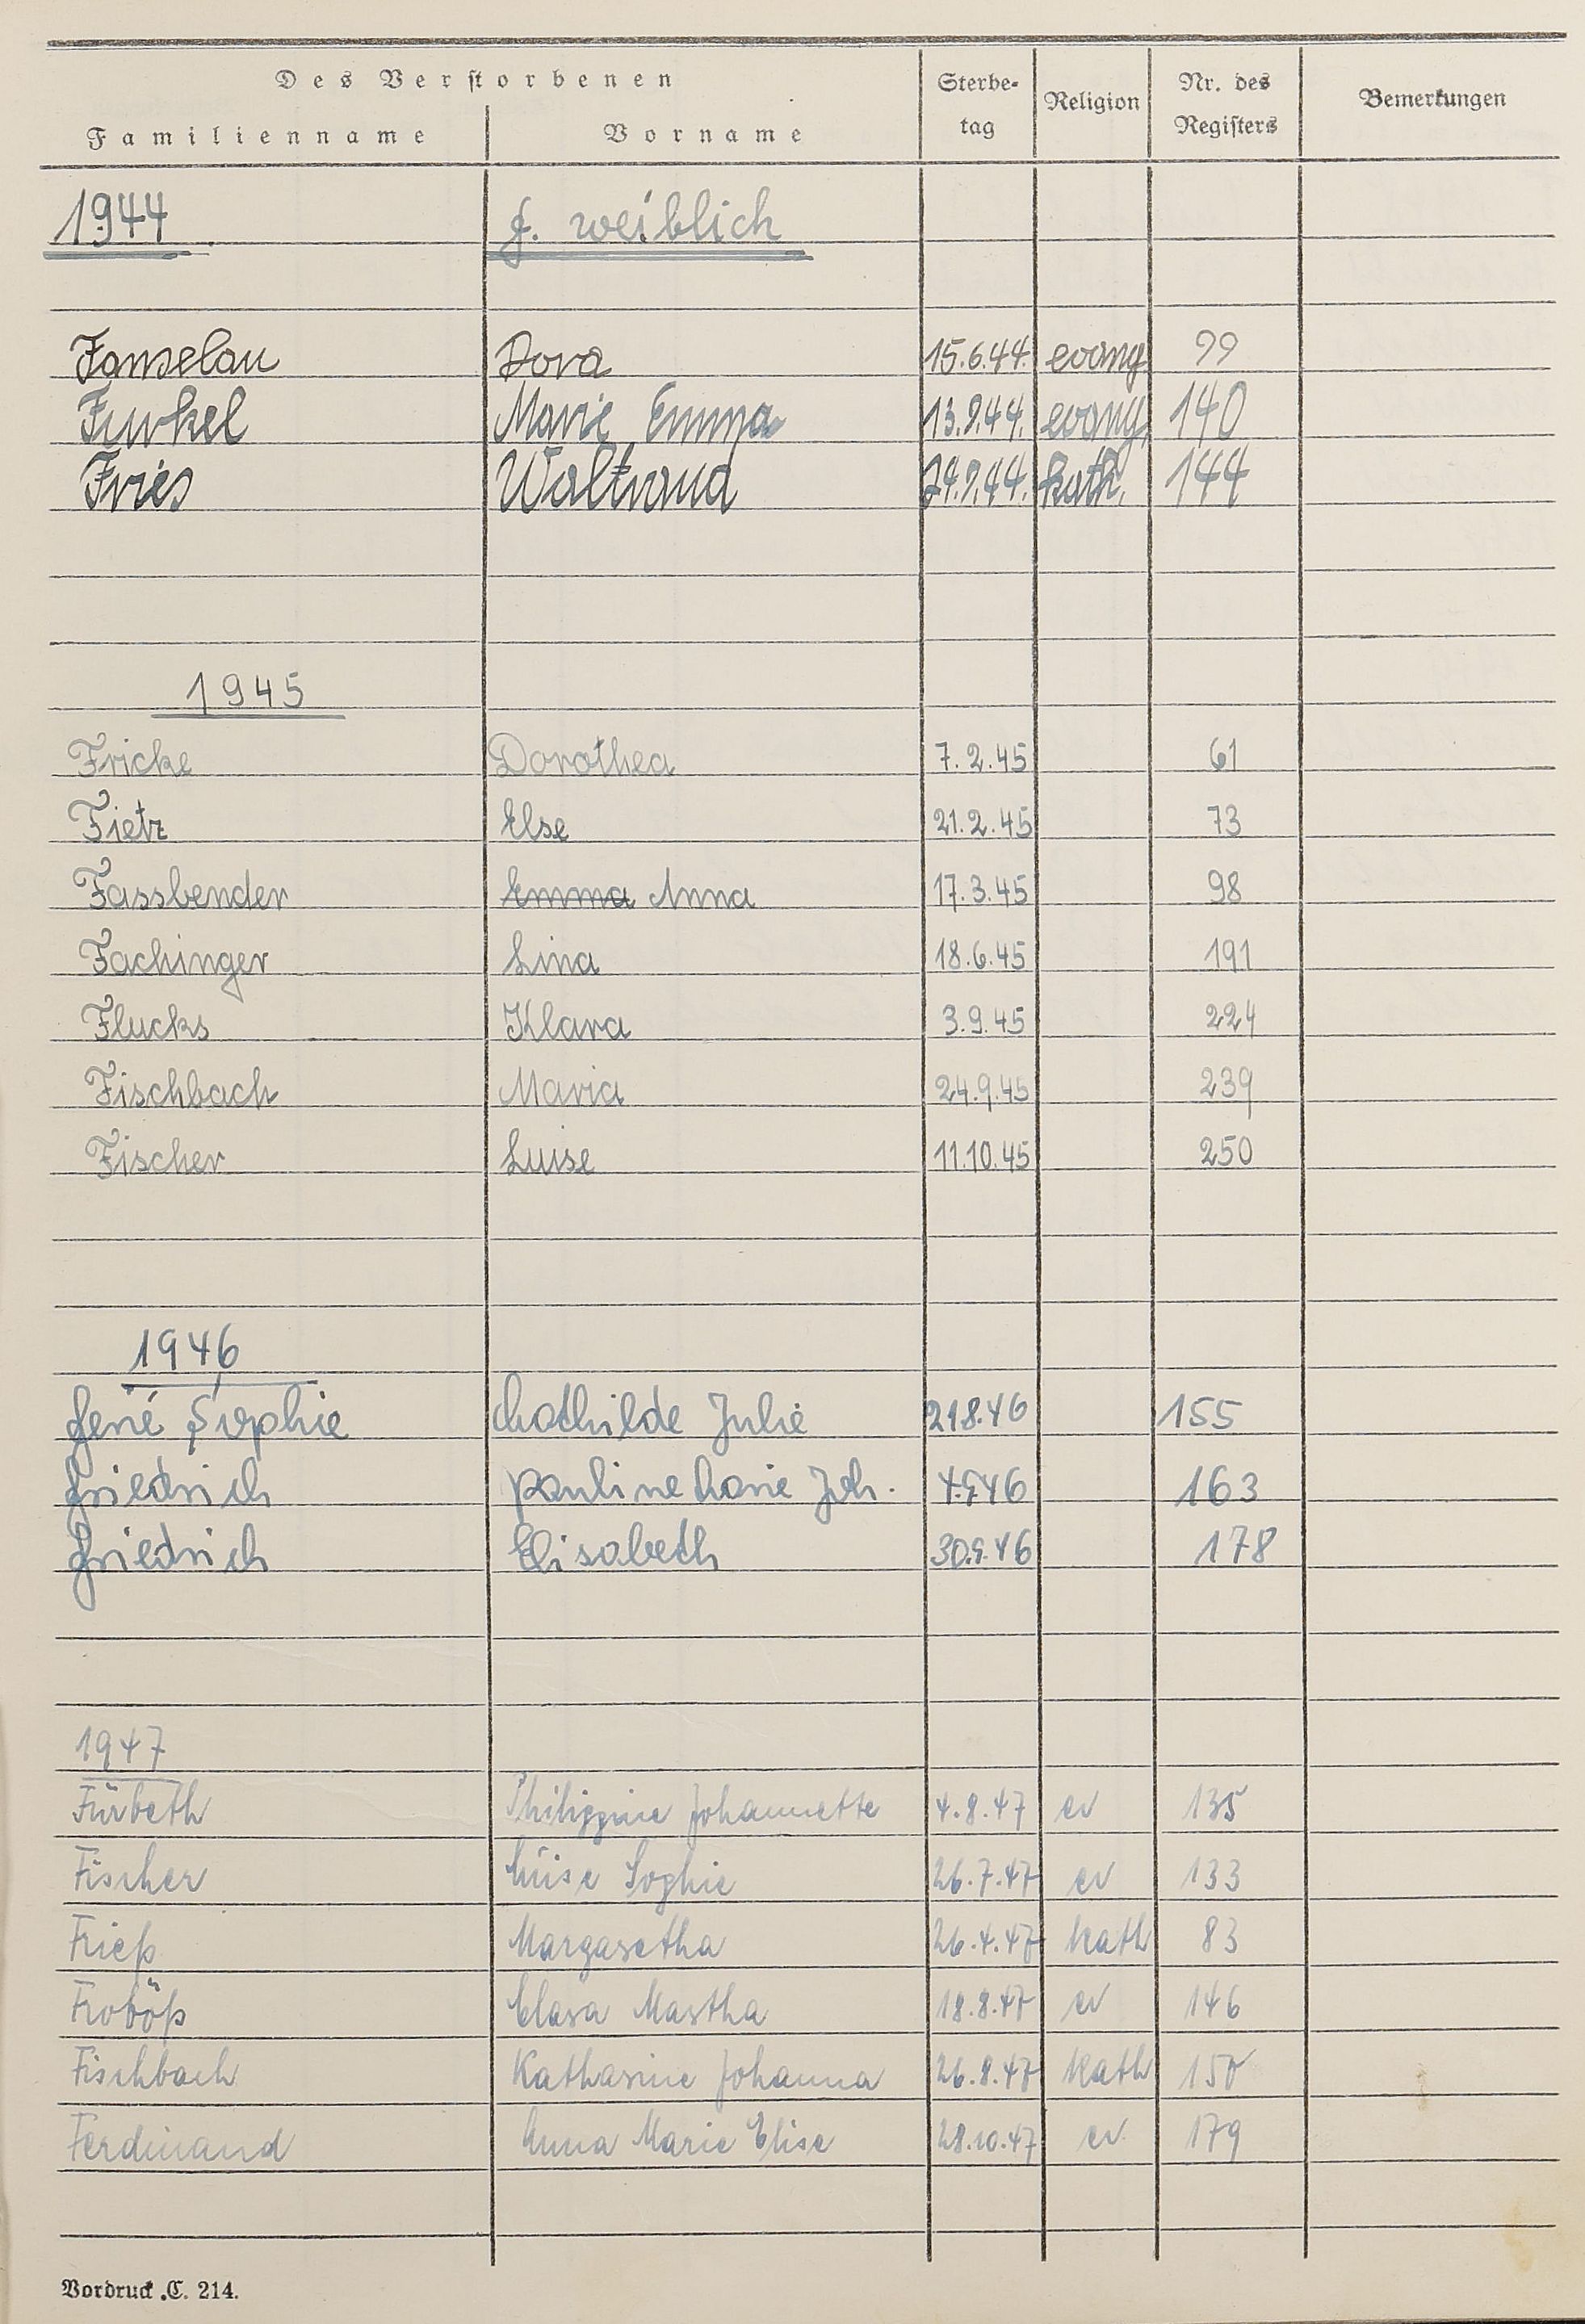 Des Verstorbenen
Familienname Vorname Sterbe-tag Religion Nr. des Registers Bemerkungen
1944 F. weiblich
Fanselau Dora 15.6.44. evang. 99
Furkel Marie Emma 13.9.44. evang. 140
Fries Waltraud 24.9.44. kath. 144
1945
Fricke Dorothea 7.2.45 61
Fietz Else 21.2.45 73
Fassbender Emma Anna 17.3.45 98
Fachinger Lina 18.6.45 191
Flucks Klara 3.9.45 224
Fischbach Maria 24.9.45 239
Fischer Luise 11.10.45 250
1946
Sophie Mathilde Julie 21.8.46 155
Friedrich Pauline Marie Joh. 4.9.46 163
Friedrich Elisabeth 30.9.46 178
1947
Fürbeth Philippine Johannette 4.8.47 ev 135
Fischer Luise Sophie 26.7.47 ev 133
Frieß Margaretha 26.4.47 Kath 83
Froböß Clara Martha 18.8.47 ev 146
Fischbach Katharine Johanna 26.8.47 Kath 150
Ferdinand Anna Marie Elise 28.10.47 ev. 179
Vordruck C. 214.